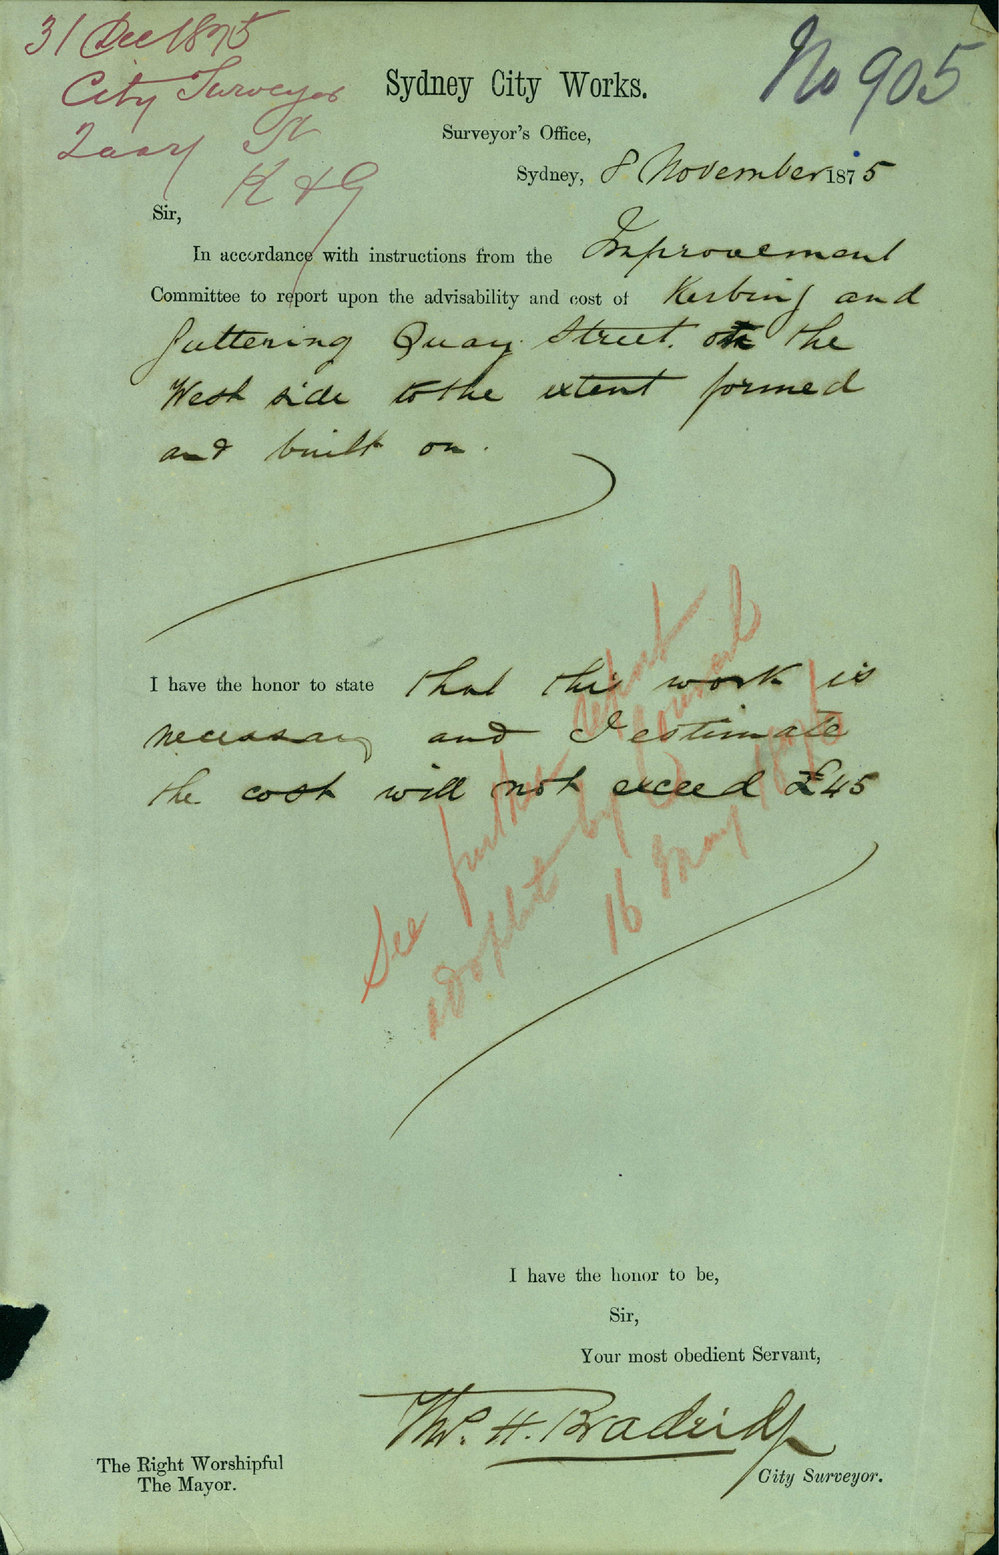 31 Dec 1875
City Surveyor
Quay St
K & G
No 905
Sydney City Works.
Surveyor's Office,
Sydney, 8 November 1875
Sir,
In accordance with instructions from the Improvement
Committee to report upon the advisability and cost of Kerbing and
guttering Quay Street. on the
West side to the extent formed
and built on.
I have the honor to state that this work is
necessary and I estimate
the cost will not exceed £45
See further report
adopted by Council
16 May 1876
I have the honor to be,
Sir,
Your most obedient Servant,
Thos. H. Bradridge
City Surveyor.
The Right Worshipful
The Mayor.